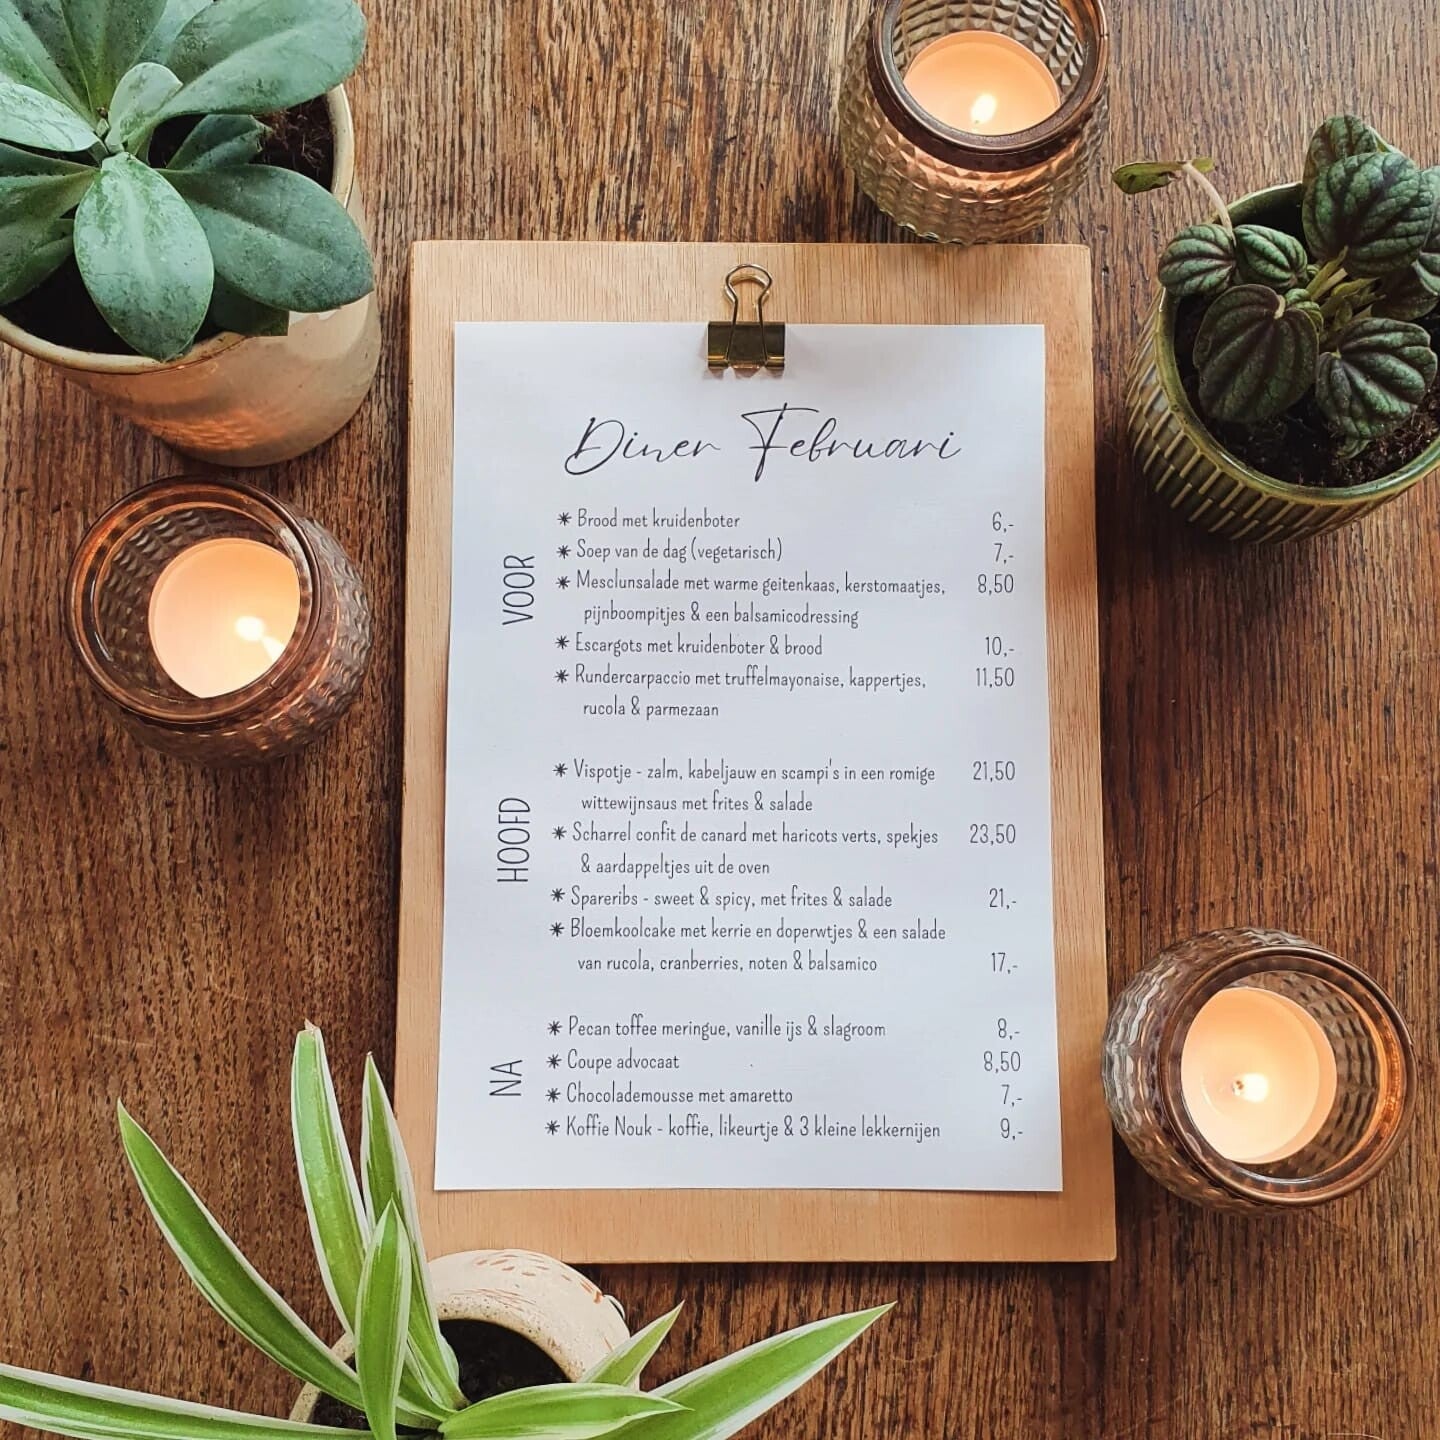 Diner Februari
VOOR
* Brood met kruidenboter 6,-
* Soep van de dag (vegetarisch) 7,-
* Mesclunsalade met warme geitenkaas, kerstomaatjes, 8,50
pijnboompitjes & een balsamicodressing
* Escargots met kruidenboter & brood 10,-
* Rundercarpaccio met truffelmayonaise, kappertjes, 11,50
rucola & parmezaan
HOOFD
* Vispotje - zalm, kabeljauw en scampi's in een romige 21,50
wittewijnsaus met frites & salade
* Scharrel confit de canard met haricots verts, spekjes 23,50
& aardappeltjes uit de oven
* Spareribs - sweet & spicy, met frites & salade 21,-
* Bloemkoolcake met kerrie en doperwtjes & een salade
van rucola, cranberries, noten & balsamico 17,-
NA
* Pecan toffee meringue, vanille ijs & slagroom 8,-
* Coupe advocaat 8,50
* Chocolademousse met amaretto 7,-
* Koffie Nouk - koffie, likeurtje & 3 kleine lekkernijen 9,-